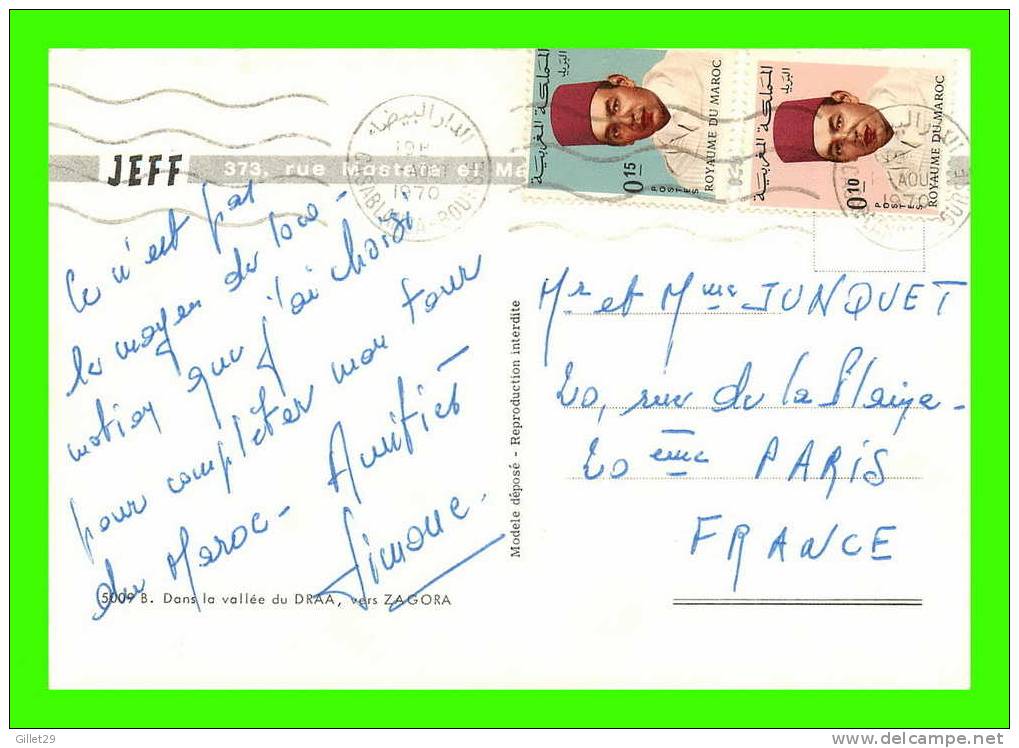 JEFF 373, rue Mostafa el Ma
الدار البيضاء
19H
AOUT
1970
المملكة المغربية
البريد
0.15
POSTES
ROYAUME DU MAROC
المملكة المغربية
البريد
0.10
POSTES
ROYAUME DU MAROC
AOUT
1970
Ce n'est pas
le moyen de loco-
motion que j'ai choisi
pour completer mon tour
du Maroc - Amitiés -
Simone.
Modèle déposé - Reproduction interdite
Mr et Mme JUNQUET
20, rue de la Plaine -
20ème PARIS
FRANCE
5009 B. Dans la vallée du DRAA, vers ZAGORA
Gillet29
www.delcampe.net